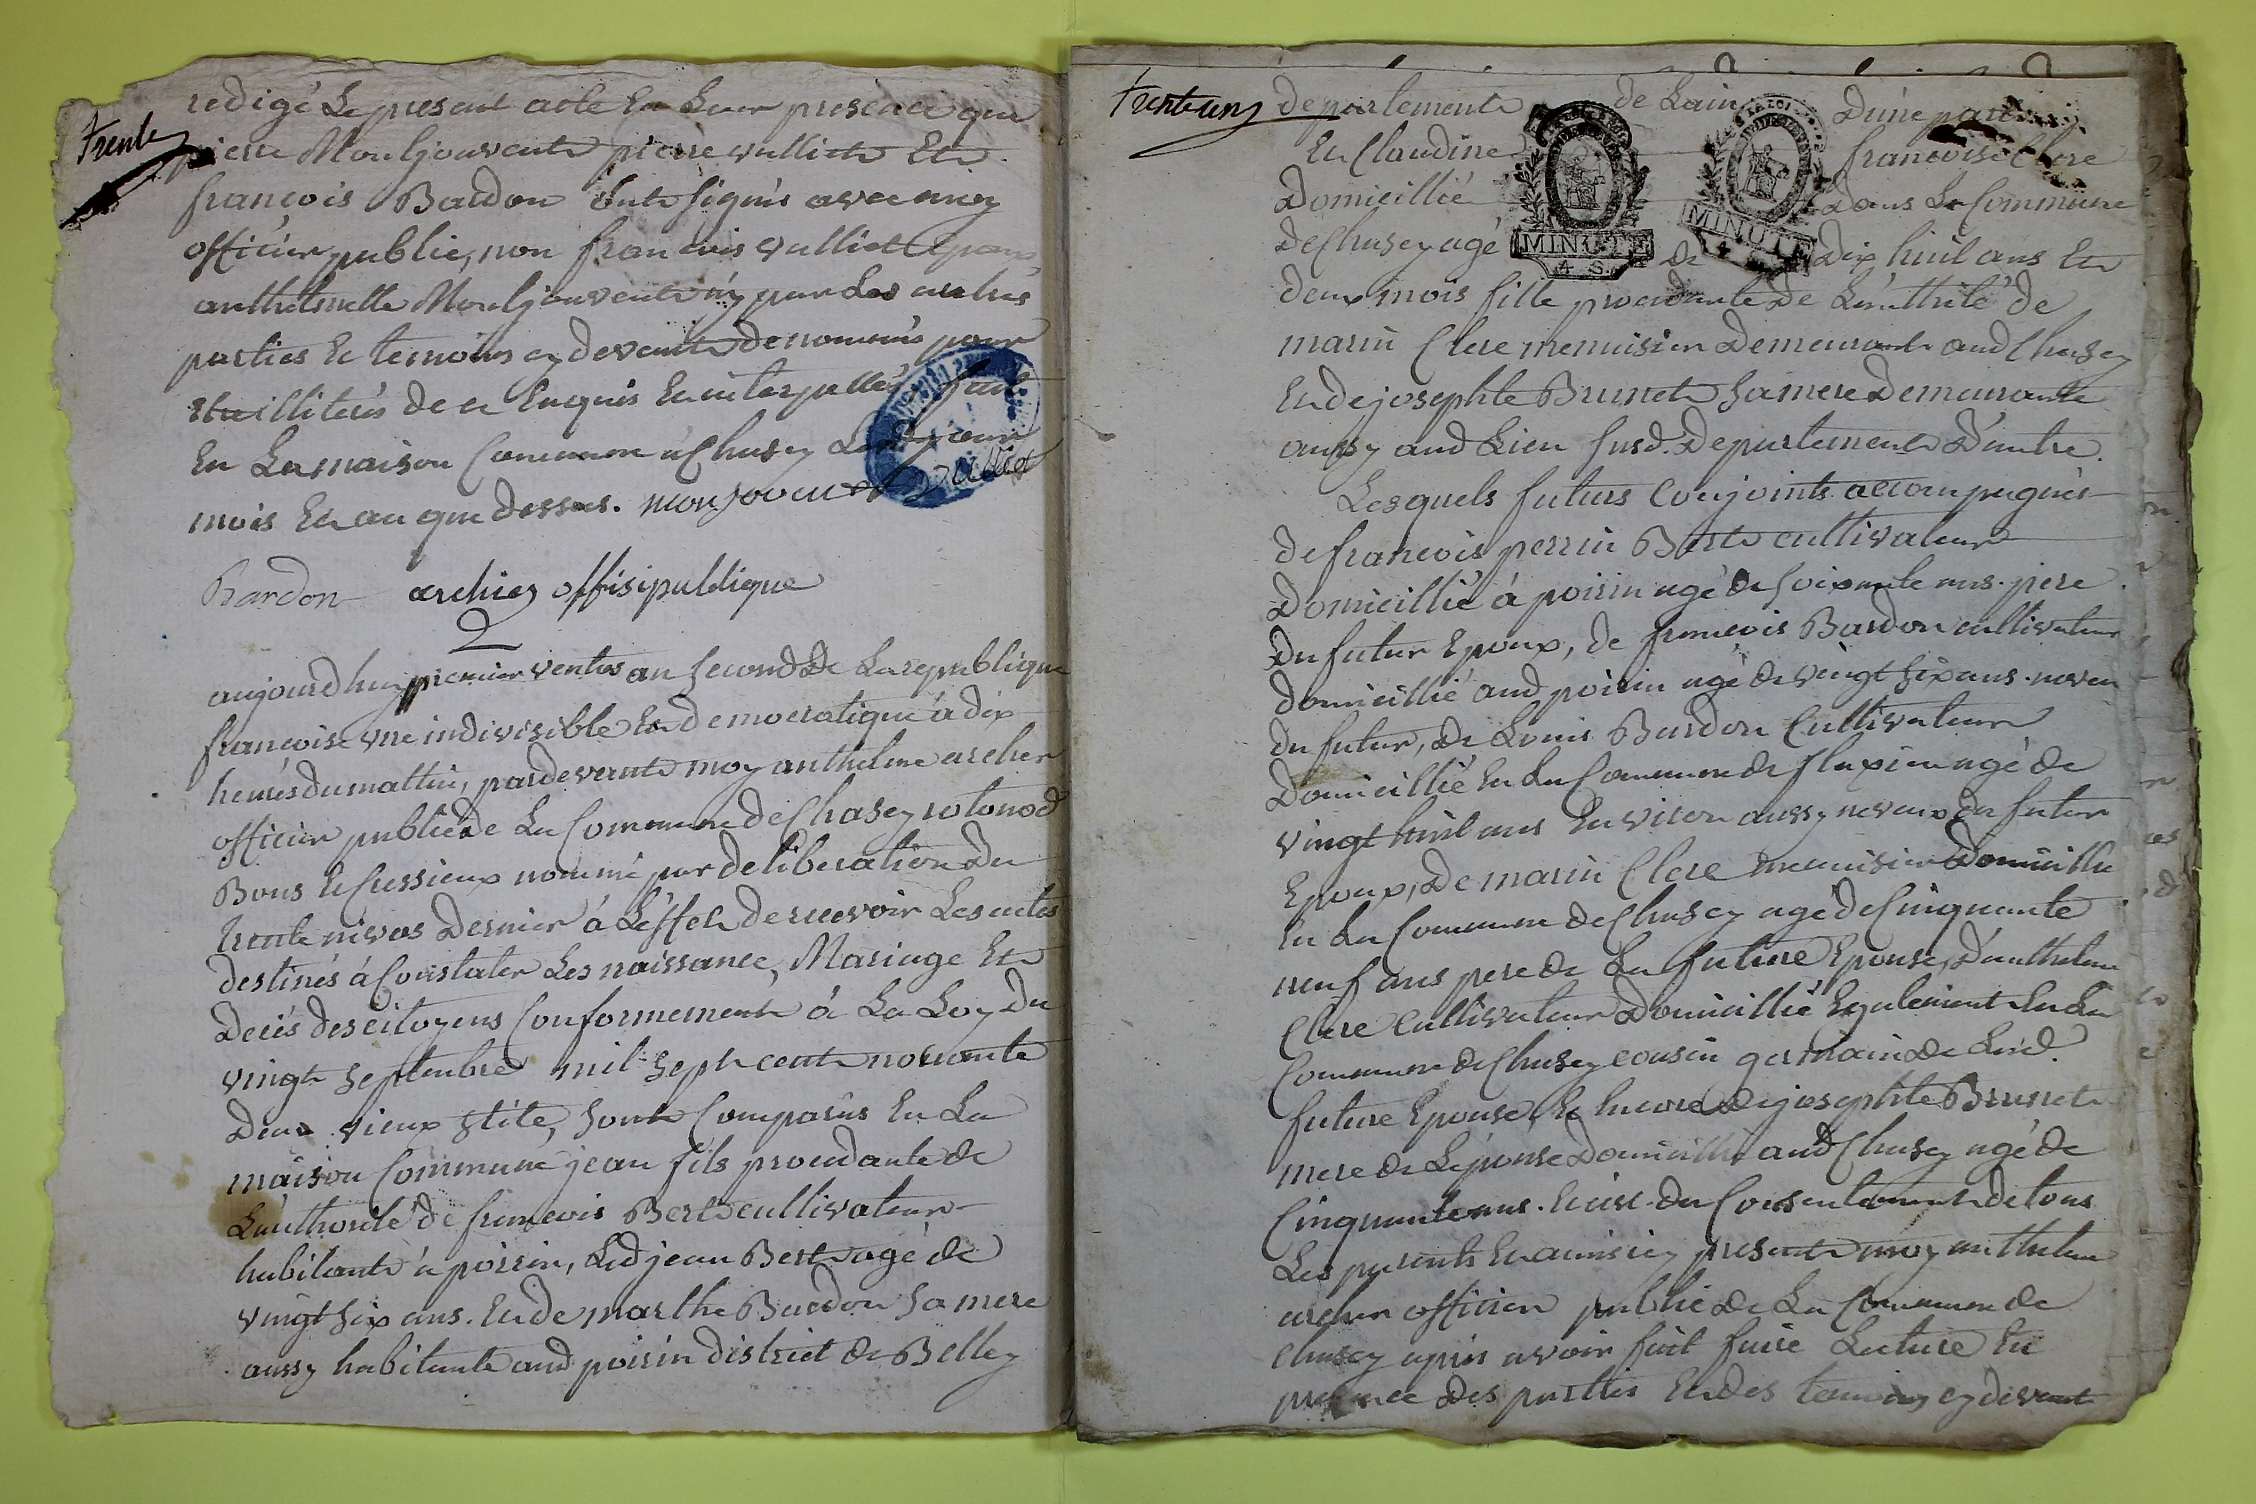 trente
redigé Le present acte En Leur presence que
pierre Monljouvent pierre vulliet Et
francois Bardon ont signés avec moy
officier public, non francois vulliet Epoux,
anthelmette Monljouvent ny par Les autres
parties Et temoins cy devent denommés pour
etre illiterés de ce Enquis Et interpellés fait
En La maison Commune à Chasey Les jour
mois Et an que dessus. monjouvent vulliet
Bardon archier offisipuldique
2
aujourdhuy premier ventos an second De La republique
francoise vne indivisible Et democratique à dix
heures du mattin, pardevent moy anthelme archer
officier public de La Commune de Chasey rotonod
Bons Et Cressieux nommé par deliberation Du
trente nivos Dernier à L'effet de recevoir Les actes
destinés à Constater Les naissance, Mariage Et
Decès des citoyens Conformement à La Loy du
vingt septembre mil sept cent nonante
Deux vieux stile, sont Comparus En La
maison Commune jean fils procedant de
L'authorité de francois Bert cultivateur
habitant à poirin, Led jean Bert agé de
vingt six ans. Et de marthe Bardon sa mere
aussy habitante aud poirin district de Belley
trente un
departement de Lain Dune part
Et Claudine francoise Clere
Domicillié dans La Commune
de Chasey agé de Dix huit ans Et
deux mois fille procedante De L'authrité de
marin Clere menuisier Demeurant aud Chasey
Et de josephte Brunet sa mere Demeurante
aussy aud Lieu susd. Departement D'autre.
Les quels futurs Conjoints accompagnés
de francois perrin Bert cultivateur
Domicillié à poirin agé de soixante ans. pere
Du futur Epoux, de francois Bardon cultivateur
domicillié aud poirin agé de vingt six ans. neveu
du futur, de Louis Bardon Cultivateur
Domicillié En La Commune de flaxieu agé de
vingt huit ans Environ aussy neveux du futur
Epoux, De marin Clere menuisier Domicillié
En La Commune de Chasey agé de Cinquante
neuf ans pere de La future Epouse, D'anthelme
Clere Cultivateur Domicillié Egalement En La
Commune de Chasey cousin germain de Lad.
future Epouse, Et Encore de josephte Brunet
mere de L'epouse Domicillié aud Chasey agé de
Cinquante ans. Et du Consentement de tous
Les parents Et amis icy present moy anthelme
archer officier public de La Commune de
Chasey apres avoir fait faire Lecture En
presence des parties Et des temoins cy devent
MINUTE
4 S.
MINUTE
4